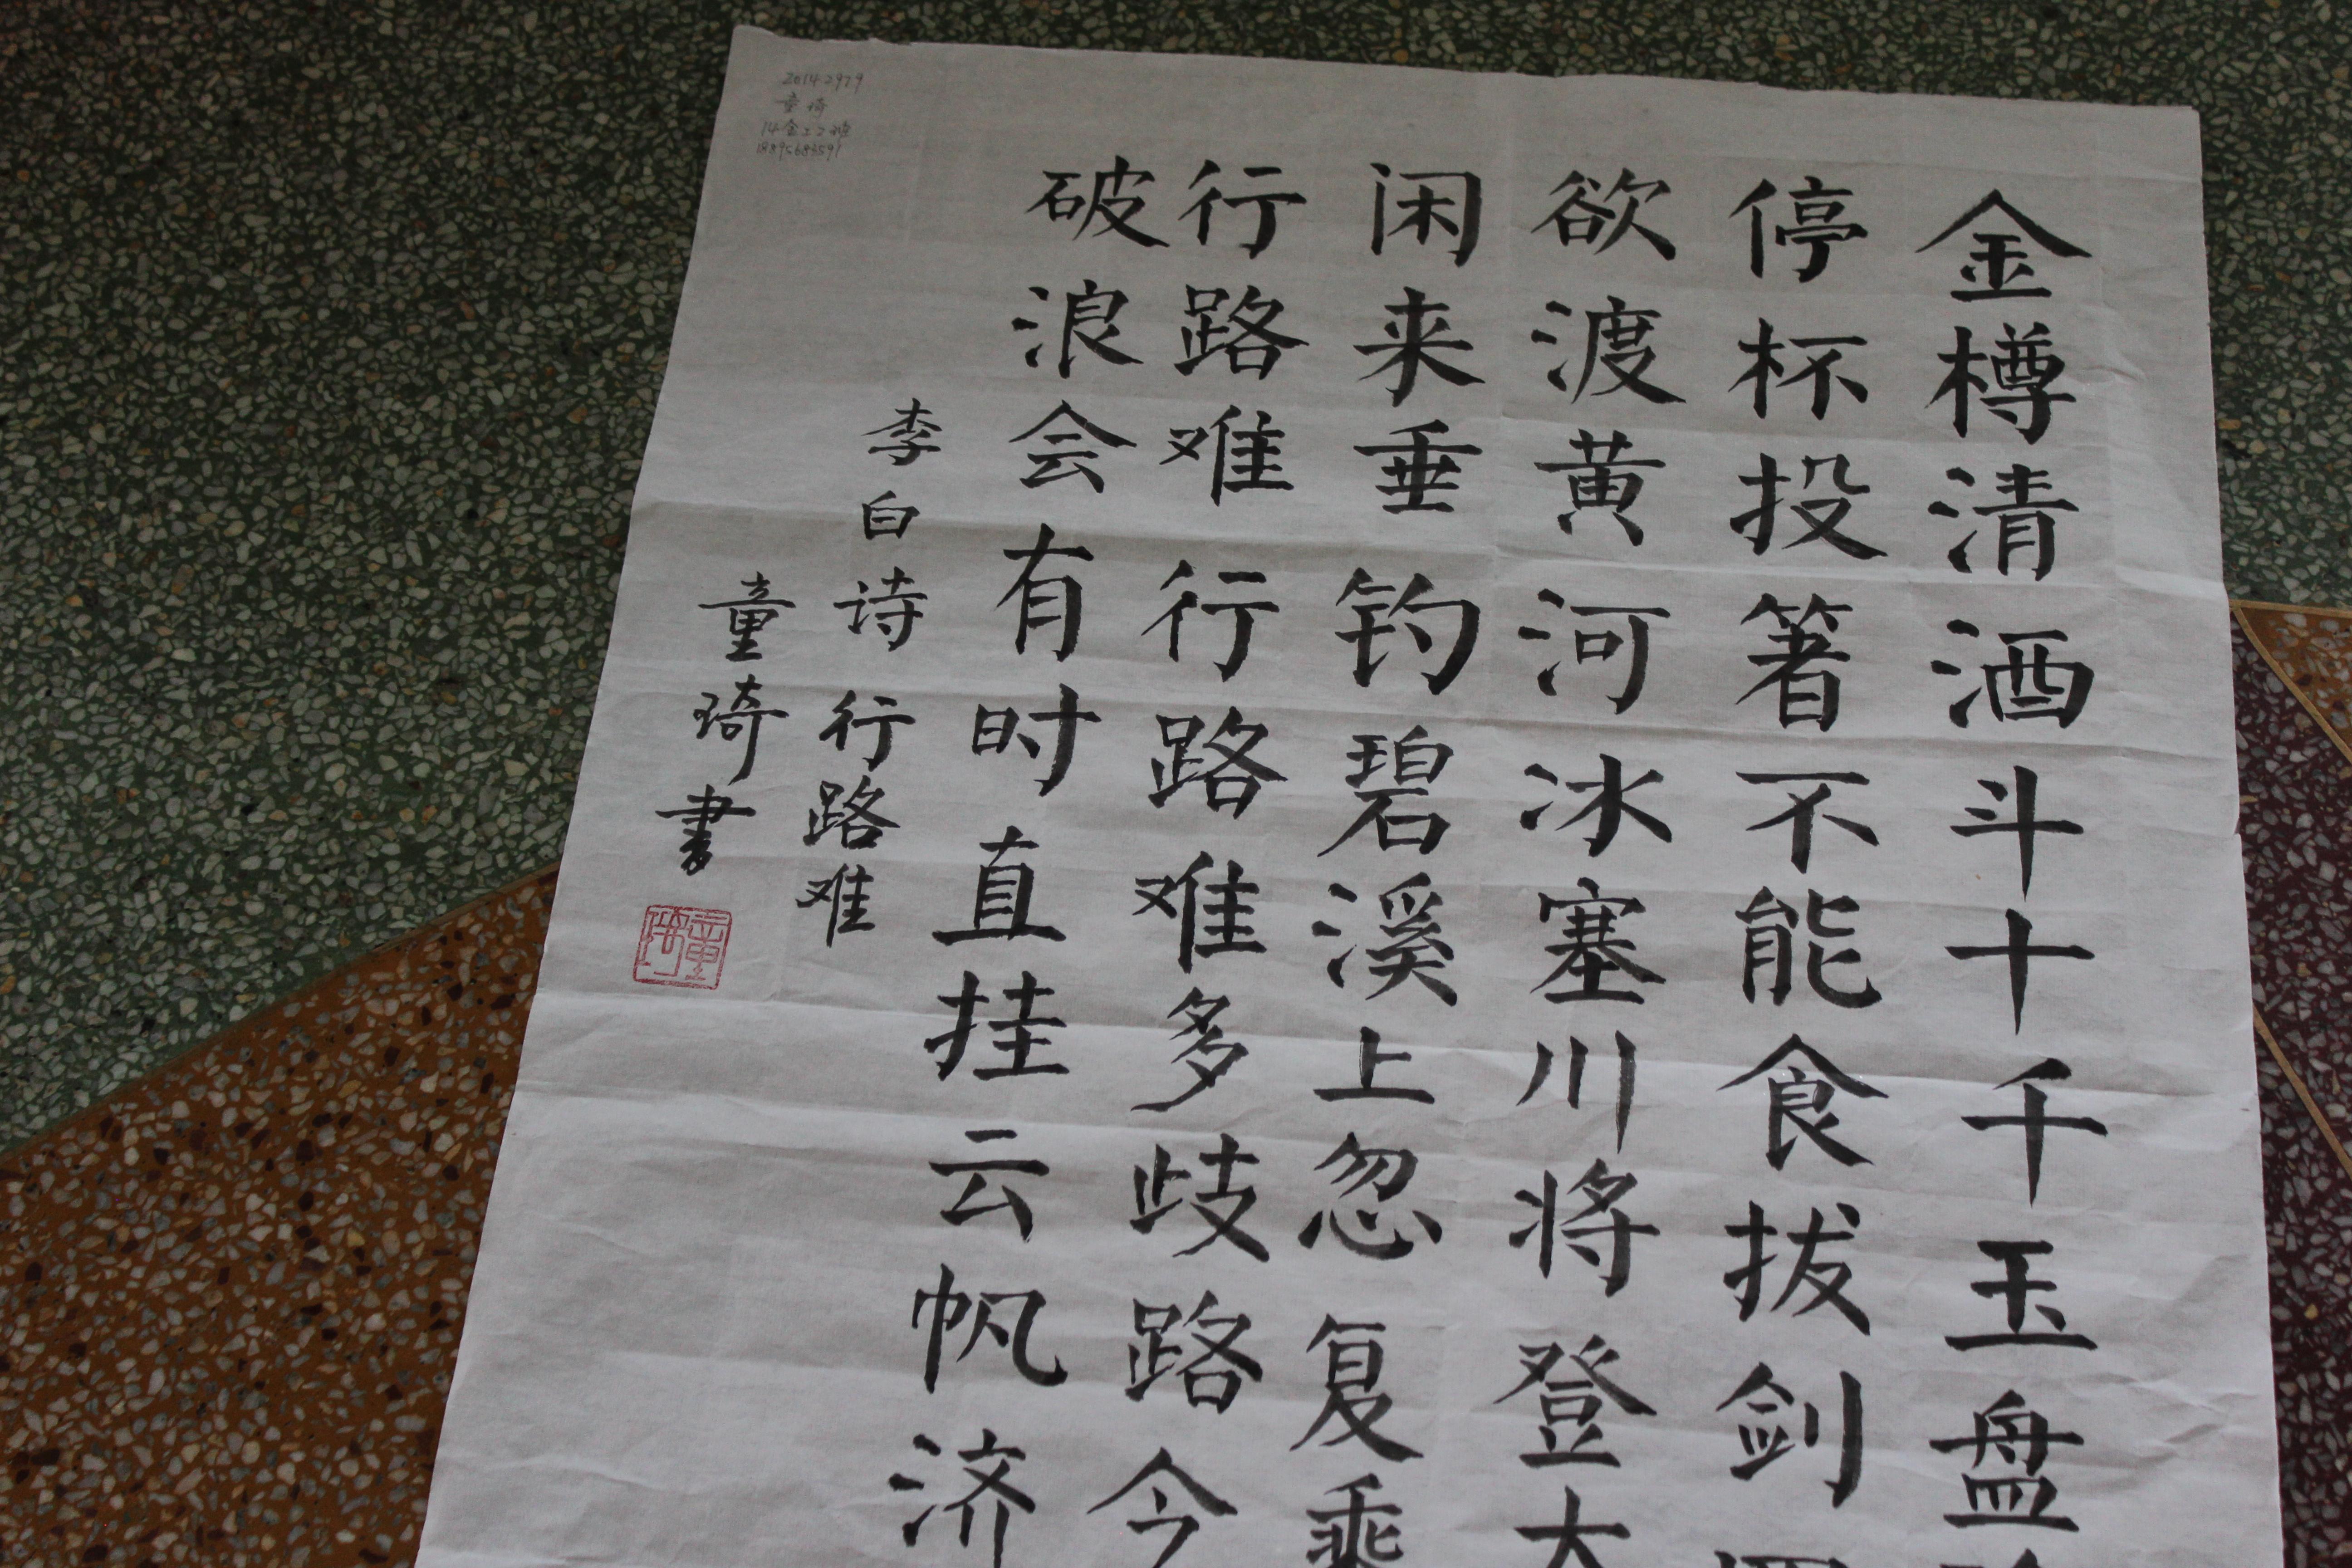 金樽清酒斗十千玉盘
停杯投箸不能食拔剑
欲渡黄河冰塞川将登太
闲来垂钓碧溪上忽复乘
行路难行路难多歧路今
破浪会有时直挂云帆济
李白诗行路难
童琦書
童琦
童琦
18895683591